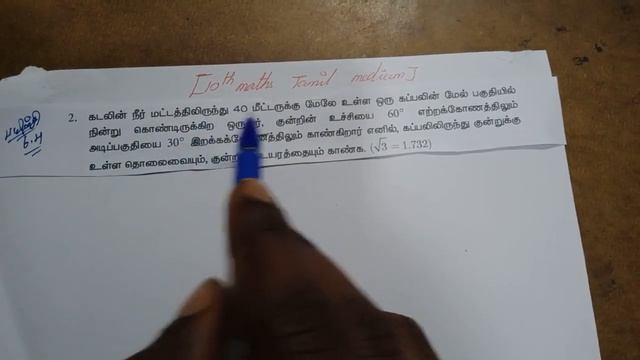 [10th maths Tamil medium]
பயிற்சி
6.4
2. கடலின் நீர் மட்டத்திலிருந்து 40 மீட்டருக்கு மேலே உள்ள ஒரு கப்பலின் மேல் பகுதியில்
நின்று கொண்டிருக்கிற குன்றின் உச்சியை 60° எற்றக்கோணத்திலும்
அடிப்பகுதியை 30° காண்கிறார் எனில், கப்பலிலிருந்து குன்றுக்கு
உள்ள தொலைவையும், காண்க. (√3 = 1.732)